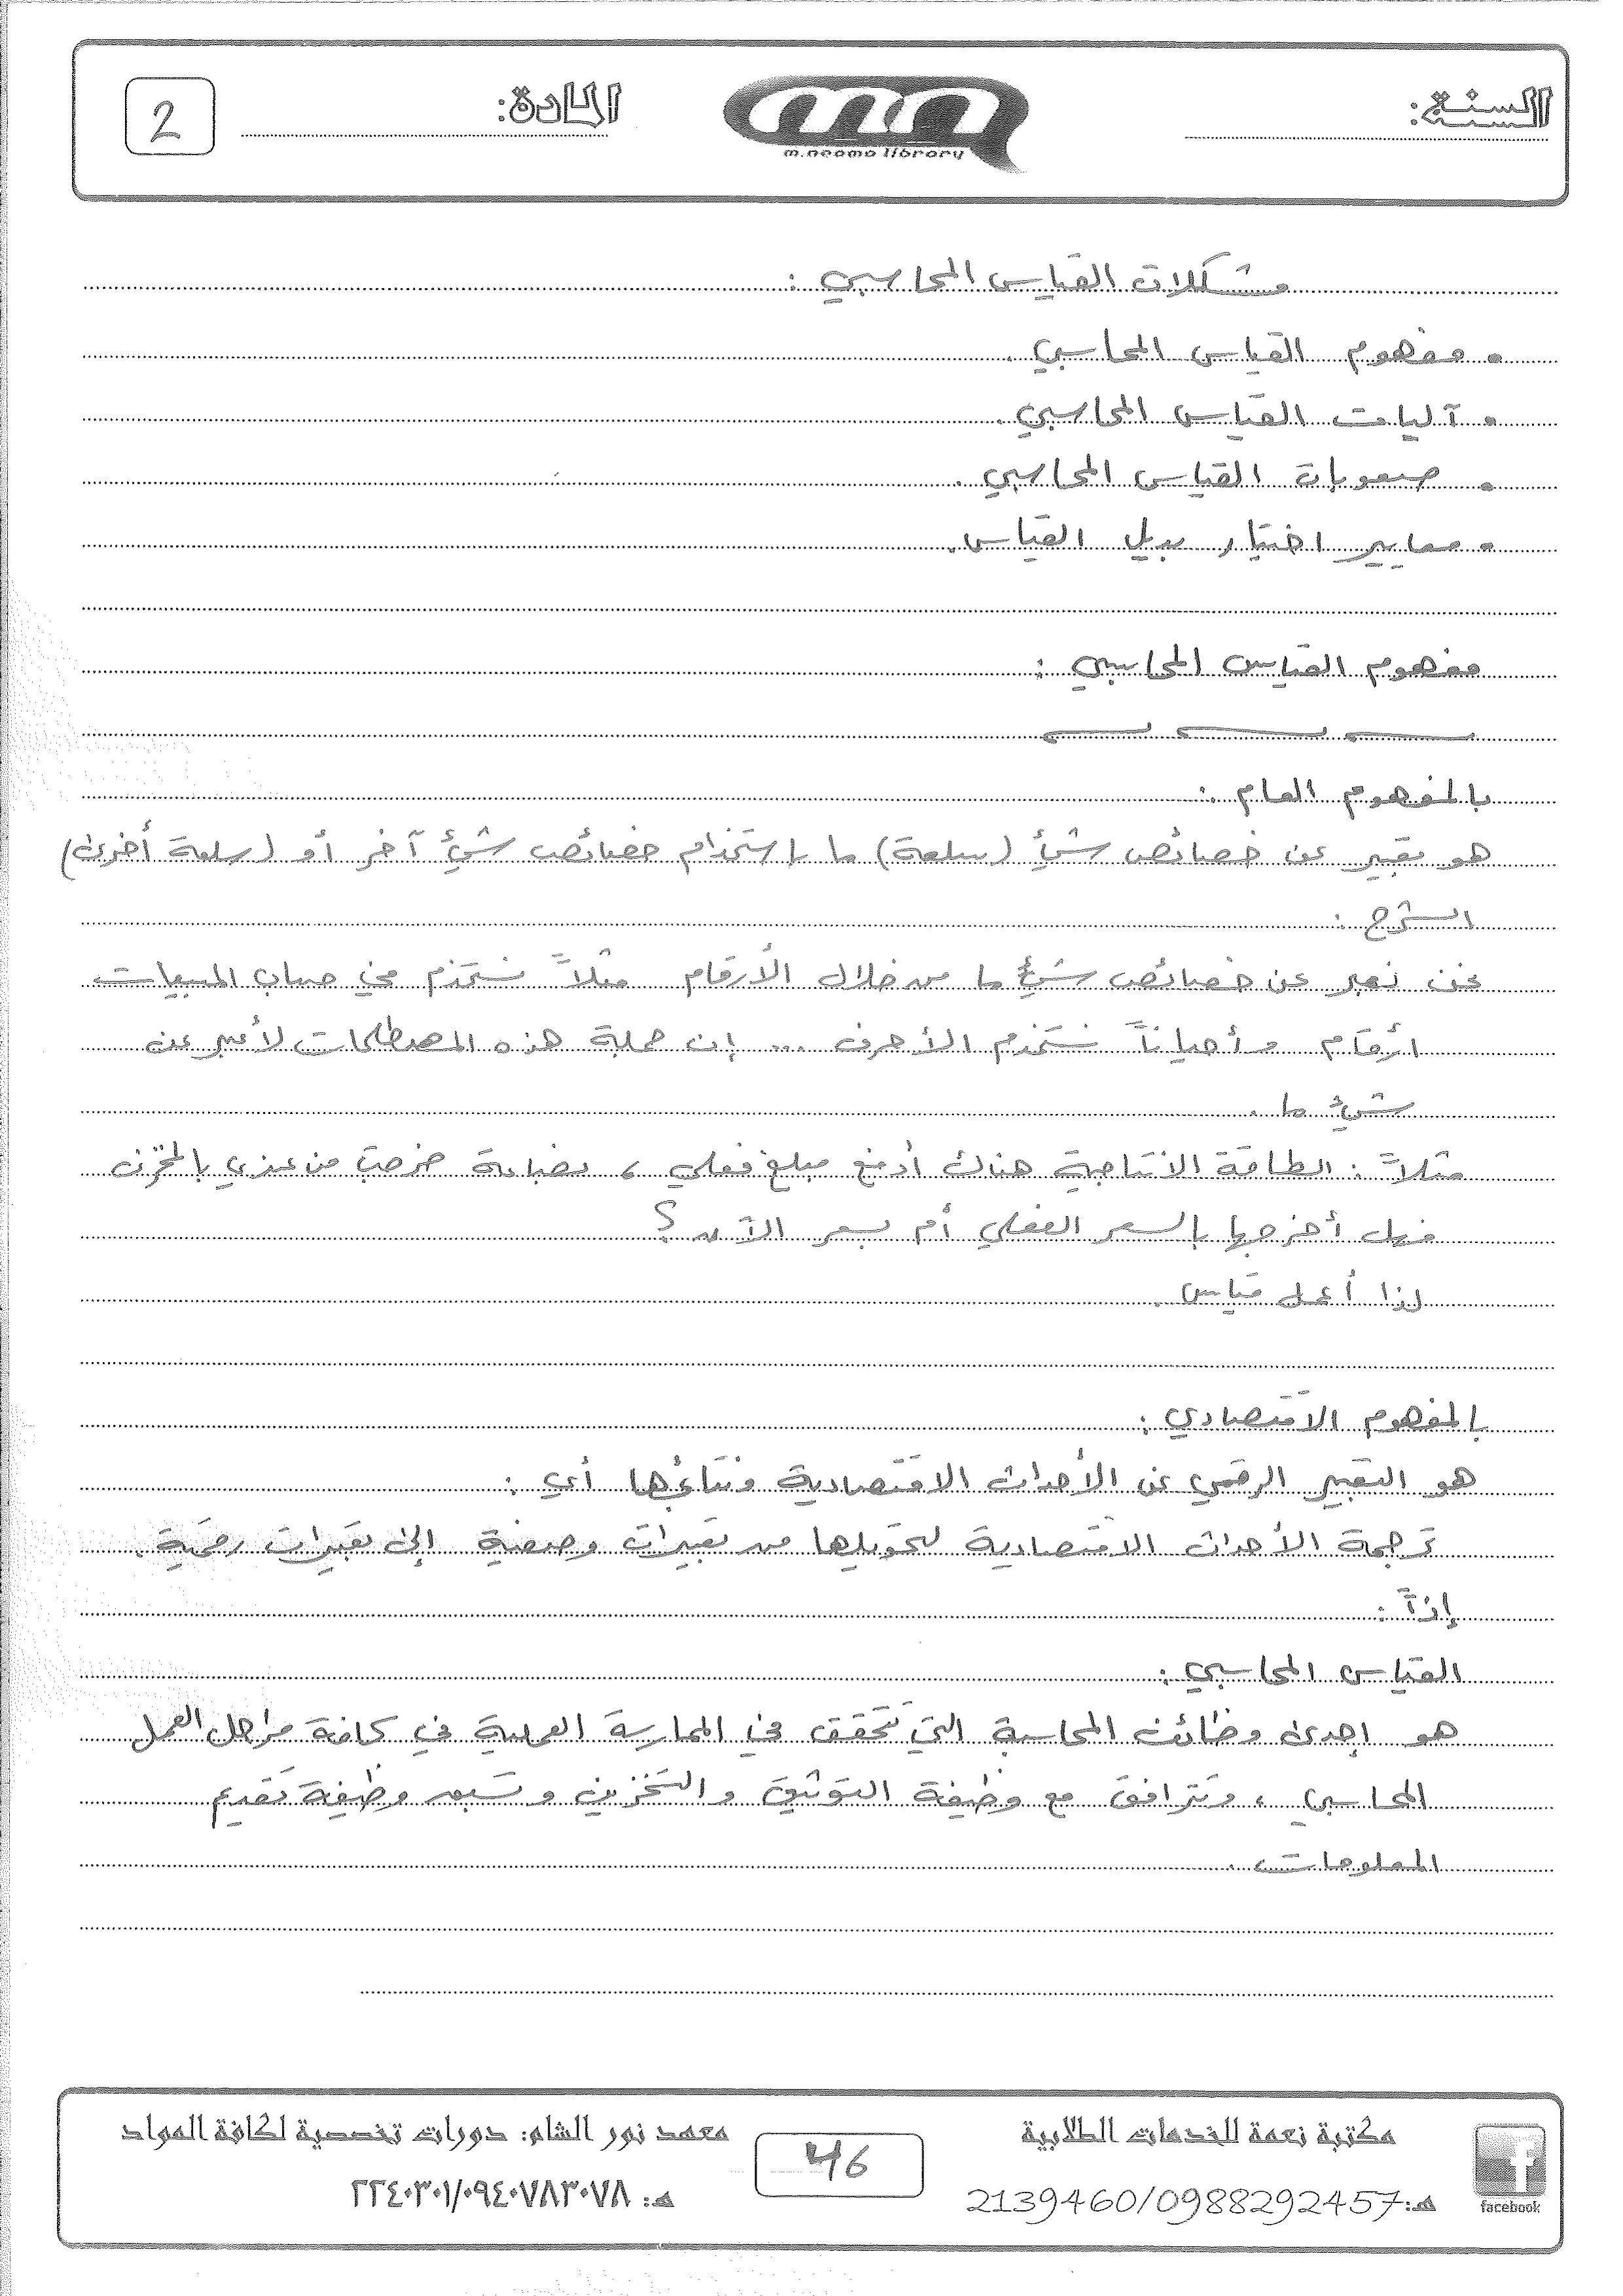 السنة:
المادة:
2
m.neama library
مشكلات القياس المحاسبي :
• مفهوم القياس المحاسبي .
• آليات القياس المحاسبي .
• صعوبات القياس المحاسبي .
• معايير اختيار بديل القياس .
مفهوم القياس المحاسبي :
بالمفهوم العام :
هو تعبير عن خصائص شيئ (سلعة) ما باستخدام خصائص شيئ آخر أو (سلعة أخرى)
الشرح :
نحن نعبر عن خصائص شيئ ما من خلال الأرقام مثلاً نستخدم في حساب المبيعات
أرقام وأحياناً نستخدم الأحرف ... إن جملة هذه المصطلحات لأعبر عن
شيئ ما .
مثلاً : الطاقة الانتاجية هناك أدفع مبلغ فعلي ، بضاعة خرجت من عندي بالمخزن
فهل أخرجها بالسعر الفعلي أم بسعر الآن ؟
لذا أعمل قياس .
بالمفهوم الاقتصادي :
هو التعبير الرقمي عن الأحداث الاقتصادية ونتائجها أي :
ترجمة الأحداث الاقتصادية لتحويلها من تعبيرات وصفية إلى تعبيرات رقمية .
إذاً :
القياس المحاسبي :
هو إحدى وظائف المحاسبة التي تتحقق في الممارسة العملية في كافة مراحل العمل
المحاسبي ، وتترافق مع وظيفة التوثيق والتخزين و تسبق وظيفة تقديم
المعلومات .
مكتبة نعمة للخدمات الطلابية
هـ: 2139460/0988292457
facebook
46
معهد نور الشام: دورات تخصصية لكافة المواد
هـ: ٢٢٤٠٣٠١/٠٩٤٠٧٨٣٠٧٨